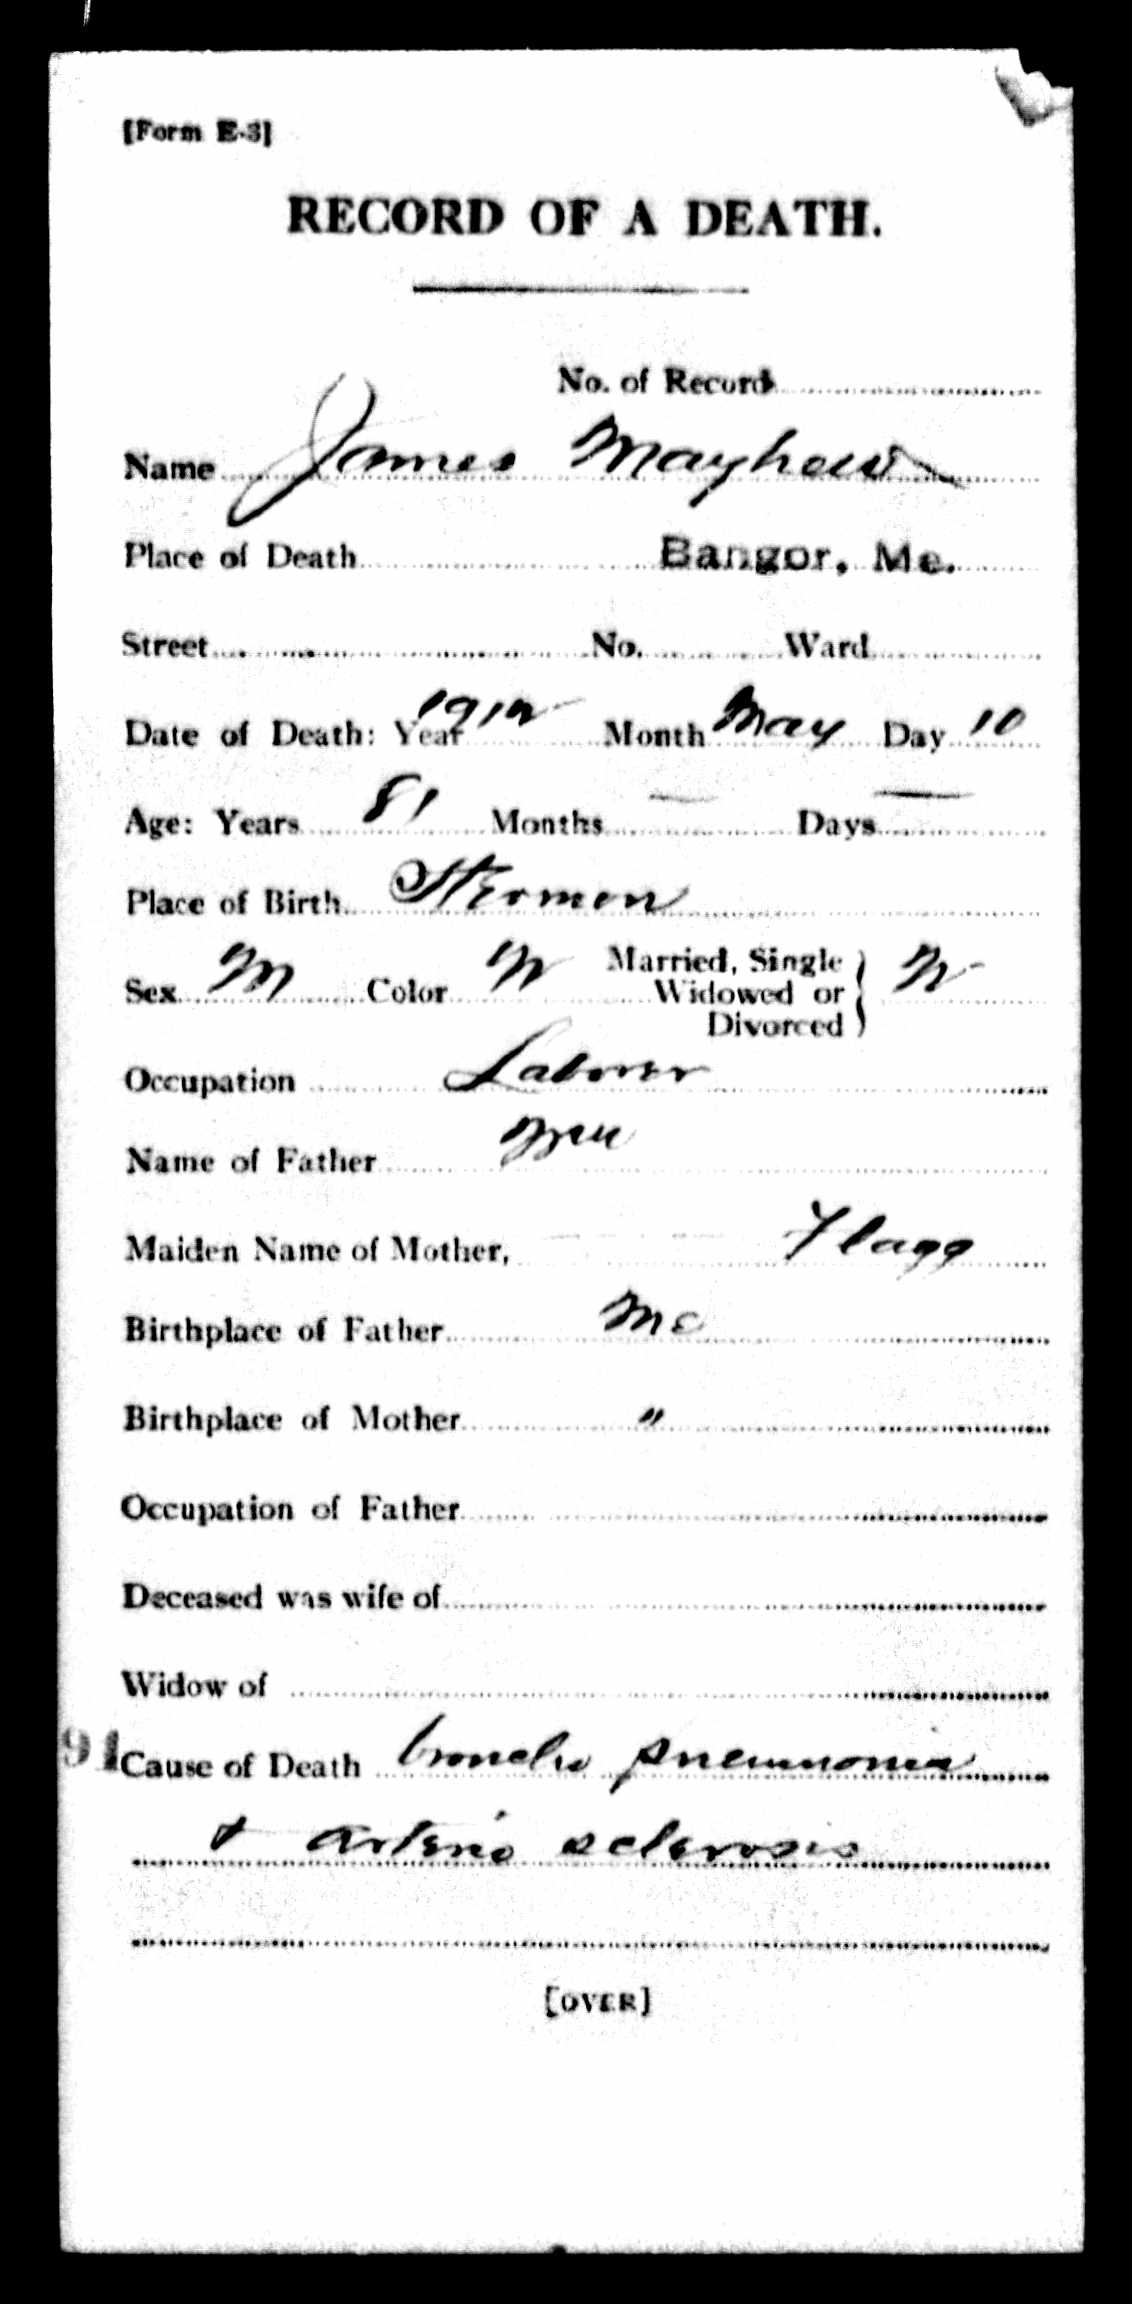 [Form E-3]
RECORD OF A DEATH.
No. of Record
Name James Mayhew
Place of Death Bangor, Me.
Street No. Ward
Date of Death: Year 1912 Month May Day 10
Age: Years 81 Months — Days —
Place of Birth Hermon
Sex M Color W Married, Single Widowed or Divorced } W
Occupation Laborer
Name of Father Wm
Maiden Name of Mother, Flagg
Birthplace of Father Me
Birthplace of Mother "
Occupation of Father
Deceased was wife of
Widow of
91 Cause of Death broncho pneumonia
+ arterio sclerosis
[OVER]